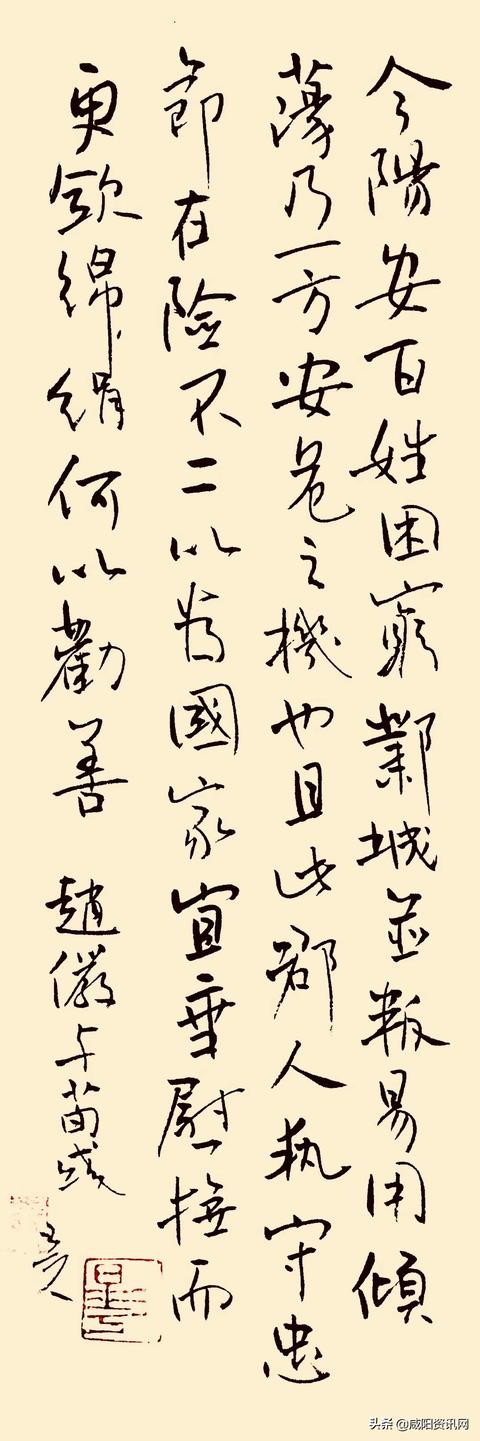 今陽安百姓困窮鄰城並叛易用傾
蕩乃一方安危之機也且此郡人執守忠
節在險不二以為國家宜垂慰撫而
更斂綿絹何以勸善 趙儼与荀彧
头条 @咸阳资讯网